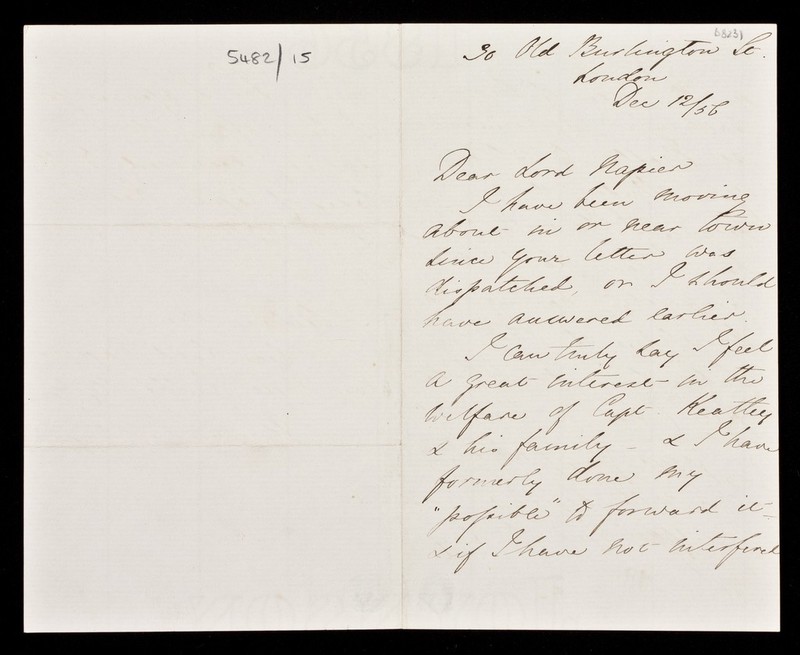 5482/15
30 Old Burlington St.
London
Dec 12/56
Dear Lord Napier
I have been moving
about in or near town
since your letter was
dispatched, or I should
have answered earlier.
I can truly say I feel
a great interest in the
welfare of Capt. Keatley
& his family - & I have
formerly done my
"possible" to forward it -
& if I have not interfered